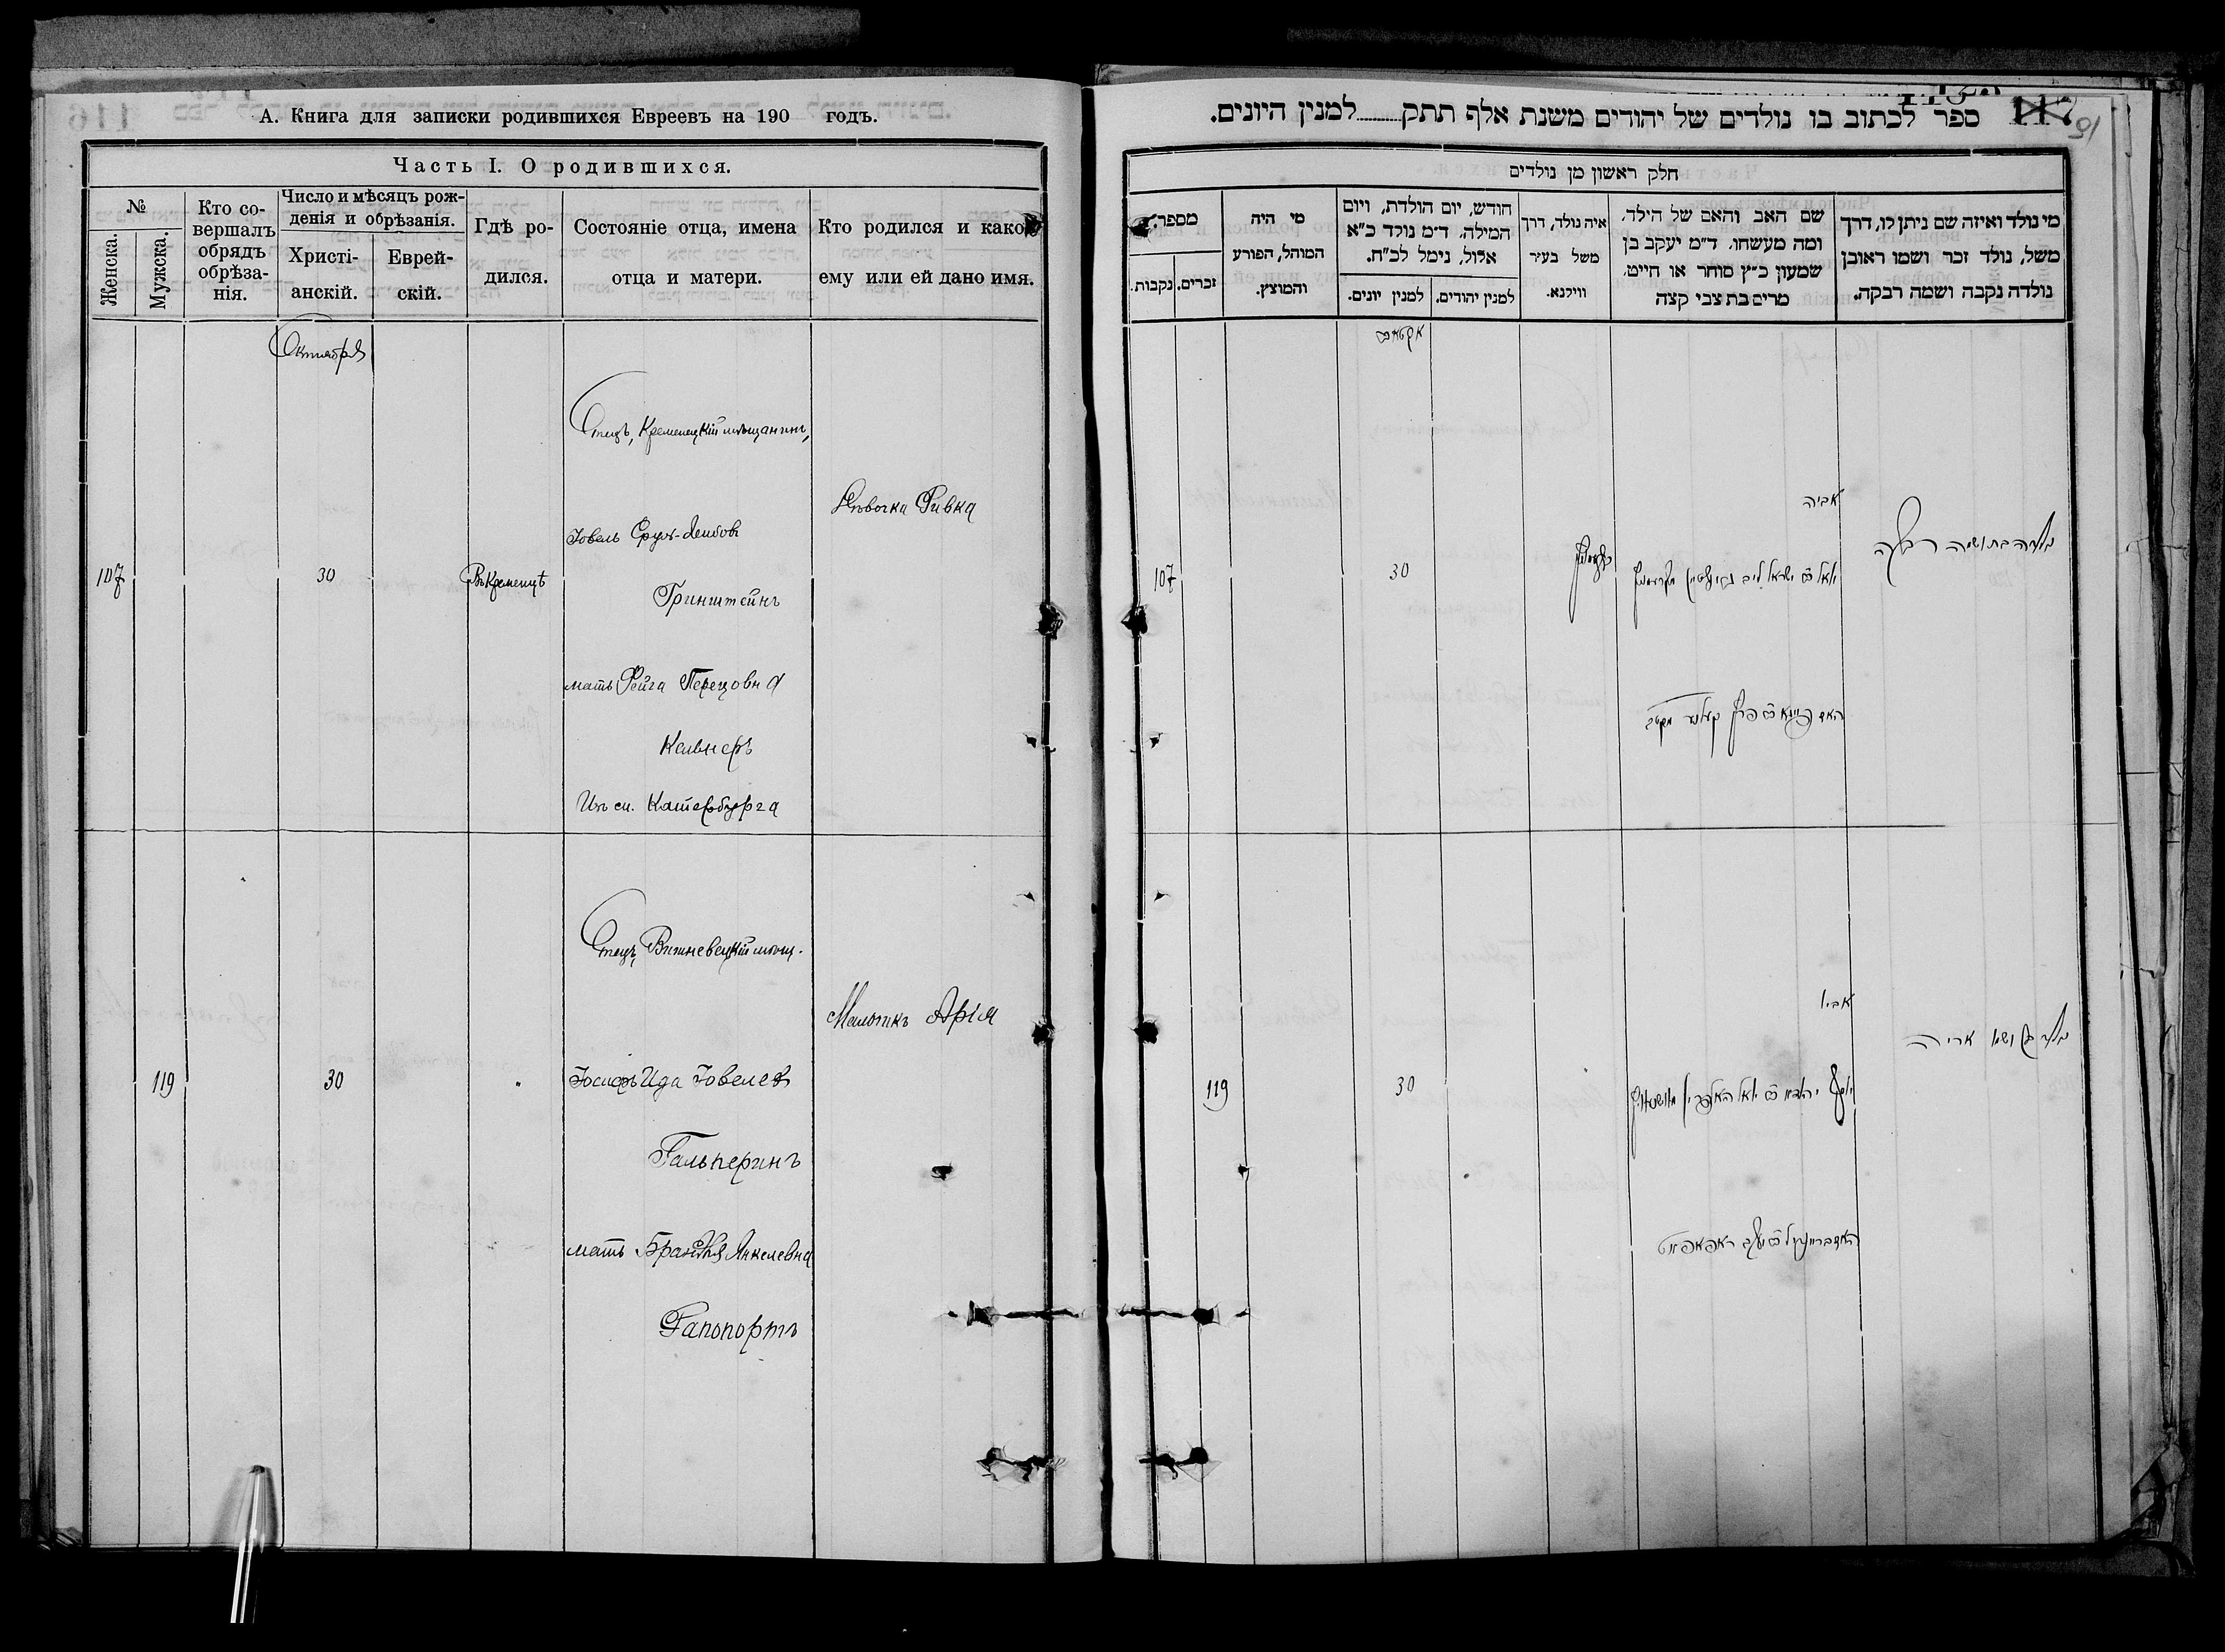 А. Книга для записки родившихся Евреевъ на 190 годъ.
Часть I. О родившихся.
№
Женска.
Мужска.
Кто со-
вершалъ
обрядъ
обрѣза-
нія.
Число и мѣсяцъ рож-
денія и обрѣзанія.
Христі-
анскій.
Еврей-
скій.
Гдѣ ро-
дился.
Состояніе отца, имена
отца и матери.
Кто родился и какое
ему или ей дано имя.
Октября
107
30
Въ Кременцѣ
Отецъ, Кременецкій мѣщанинъ,
Іовель Сруль-Лейбовъ
Гринштейнъ
мать Фейга Перецовна
Кельнеръ
Изъ с. Катербурга
Дѣвочка Ривка
119
30
"
Отецъ, Вишневецкій мѣщ.
Іосифъ Ида Іовелев
Гальперинъ
мать Янкелевна
Рапопортъ
Мальчикъ Арія
ספר לכתוב בו נולדים של יהודים משנת אלף תתק למנין היונים.
91
חלק ראשון מן נולדים
מספר.
נקבות.
זכרים.
מי היה
המוהל, הפורע
והמוצץ.
חודש, יום הולדת, ויום
המילה, ד״מ נולד כ״א
אלול, נימל לכ״ח.
למנין יונים.
למנין יהודים.
איה נולד, דרך
משל בעיר
ווילנא.
שם האב והאם של הילד,
ומה מעשהו. ד״מ יעקב בן
שמעון כ״ץ סוחר או חייט,
מרים בת צבי קצה
מי נולד ואיזה שם ניתן לו, דרך
משל, נולד זכר ושמו ראובן
נולדה נקבה ושמה רבקה.
107
30
אביה
יואל ישראל ליב
ושמה רבקה
119
30
אביו
יוסף יואל האלפרין
ראפאפורט
ושמו אריה